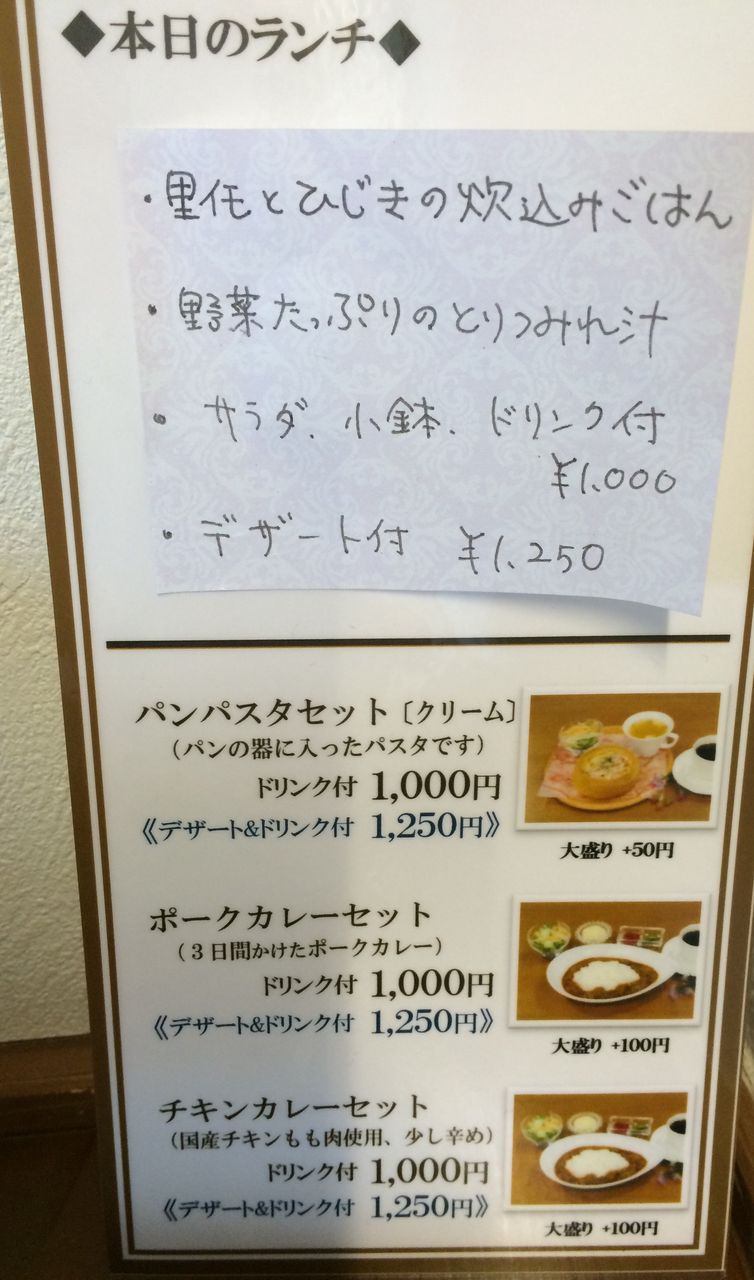 ◆本日のランチ◆
・里芋とひじきの炊込みごはん
・野菜たっぷりのとりつみれ汁
・サラダ、小鉢、ドリンク付
¥1,000
・デザート付 ¥1,250
パンパスタセット〔クリーム〕
(パンの器に入ったパスタです)
ドリンク付 1,000円
《デザート&ドリンク付 1,250円》
大盛り +50円
ポークカレーセット
(3日間かけたポークカレー)
ドリンク付 1,000円
《デザート&ドリンク付 1,250円》
大盛り +100円
チキンカレーセット
(国産チキンもも肉使用、少し辛め)
ドリンク付 1,000円
《デザート&ドリンク付 1,250円》
大盛り +100円